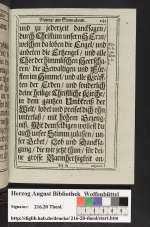 und zu jederzeit dancksagen,
durch Christum unsern HErrn,
welchen da loben die Engel, und
anbeten die Ertzengel, und alle
Chör der himmlischen Heerscha-
ren, die Gewaltigen und
im Himmel, und alle
der Erden, und sonderlich
deine heilige Christliche Kirche
in dem gantzen Umkreiß der
Welt, lobet und preiset dich ohn
unterlaß, mit hohem
Mit demselbigen wollest du
auch unser Stimm
ser Gebet, Lob und Dancksa-
gung, die wir jetzt thun, für dei-
ne grosse Barmhertzigkeit an-
Herzog August Bibliothek Wolfenbüttel
Signatur: 216.20 Theol.
http://diglib.hab.de/drucke/216-20-theol/start.htm